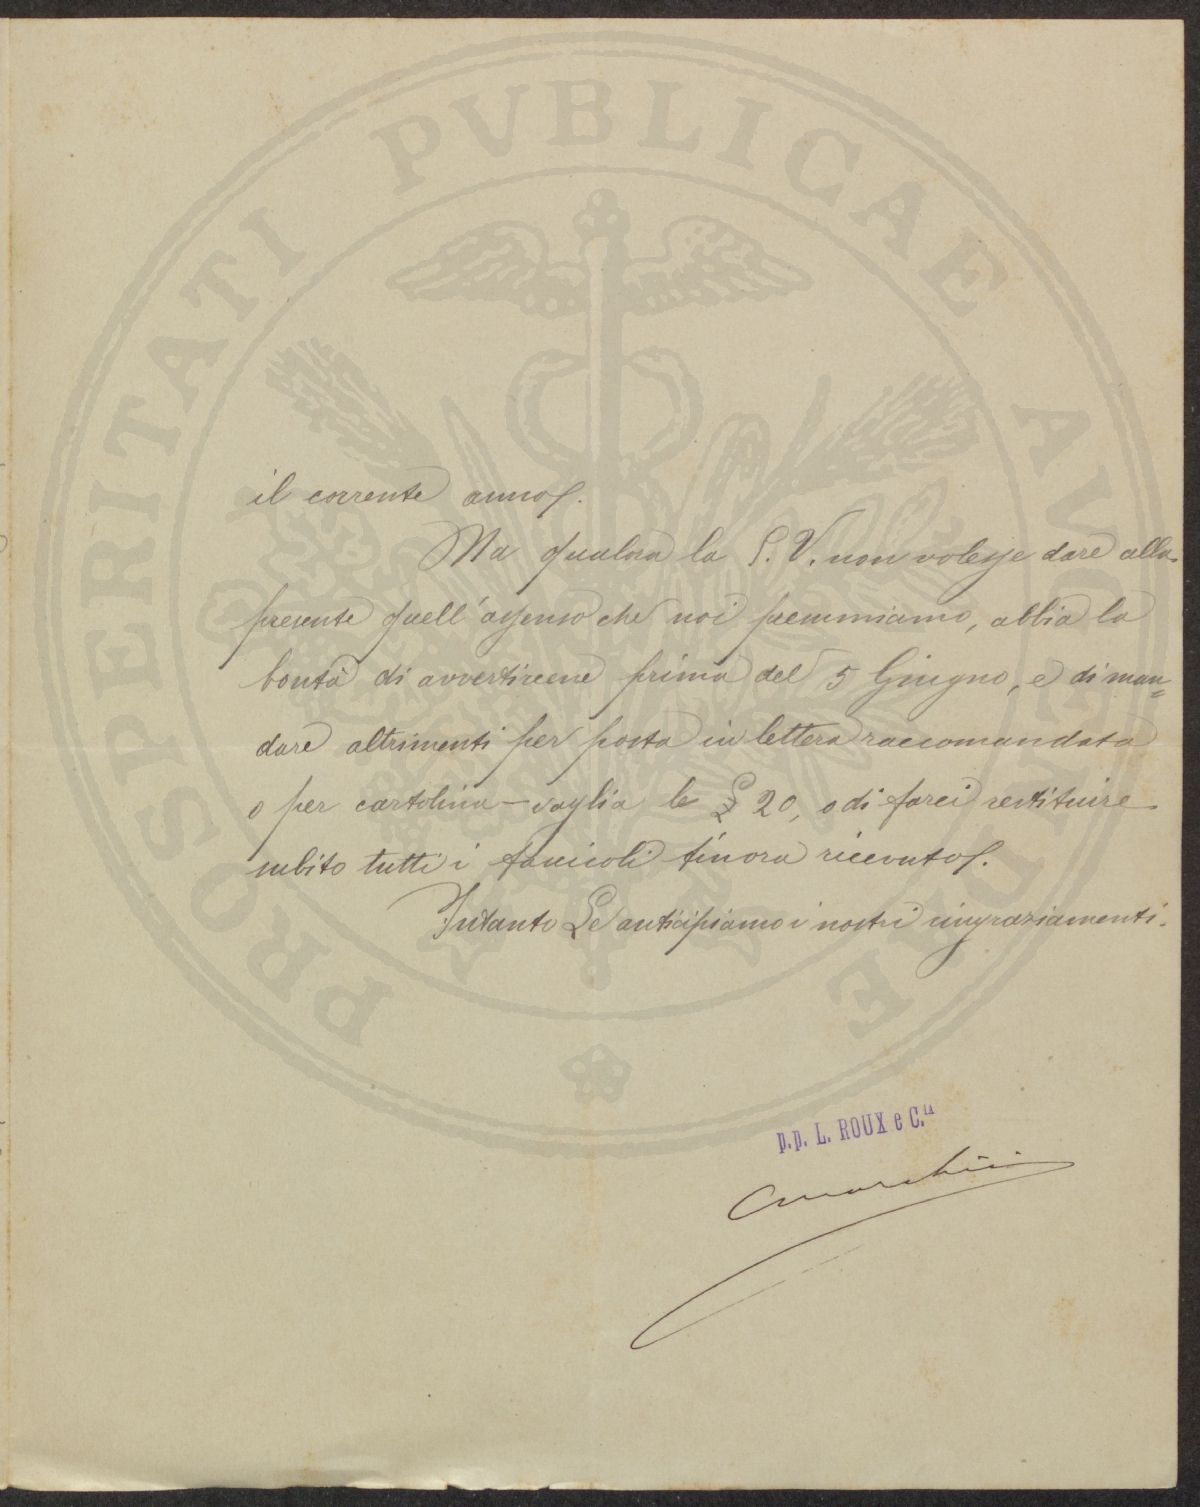 PROSPERITATI PVBLICAE AVGENDAE
il corrente anno.
Ma qualora la S. V. non volesse dare alla
presente quell'assenso che noi premmiamo, abbia la
bontà di avvertircene prima del 5 Giugno, e di man=
dare altrimenti per posta in lettera raccomandata
o per cartolina-vaglia le £ 20, o di farci restituire
subito tutti i fascicoli finora ricevuto.
Intanto Le anticipiamo i nostri ringraziamenti.
p.p. L. ROUX e C.ia